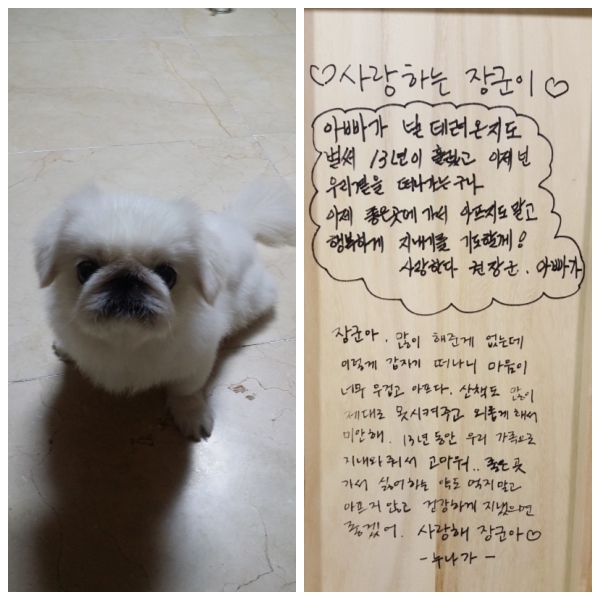 ♡사랑하는 장군이♡
아빠가 널 데려온지도
벌써 13년이 흘렀고 이제 넌
우리곁을 떠나가는구나
이제 좋은곳에 가서 아프지도 말고
행복하게 지내기를 기도할게!
사랑한다 권장군. 아빠가
장군아. 많이 해준게 없는데
이렇게 갑자기 떠나니 마음이
너무 무겁고 아프다. 산책도 많이
제대로 못시켜주고 외롭게 해서
미안해. 13년 동안 우리 가족으로
지내와 줘서 고마워.. 좋은 곳
가서 싫어하는 약도 먹지말고
아프지 않고 건강하게 지냈으면
좋겠어. 사랑해 장군아♡
- 누나가 -